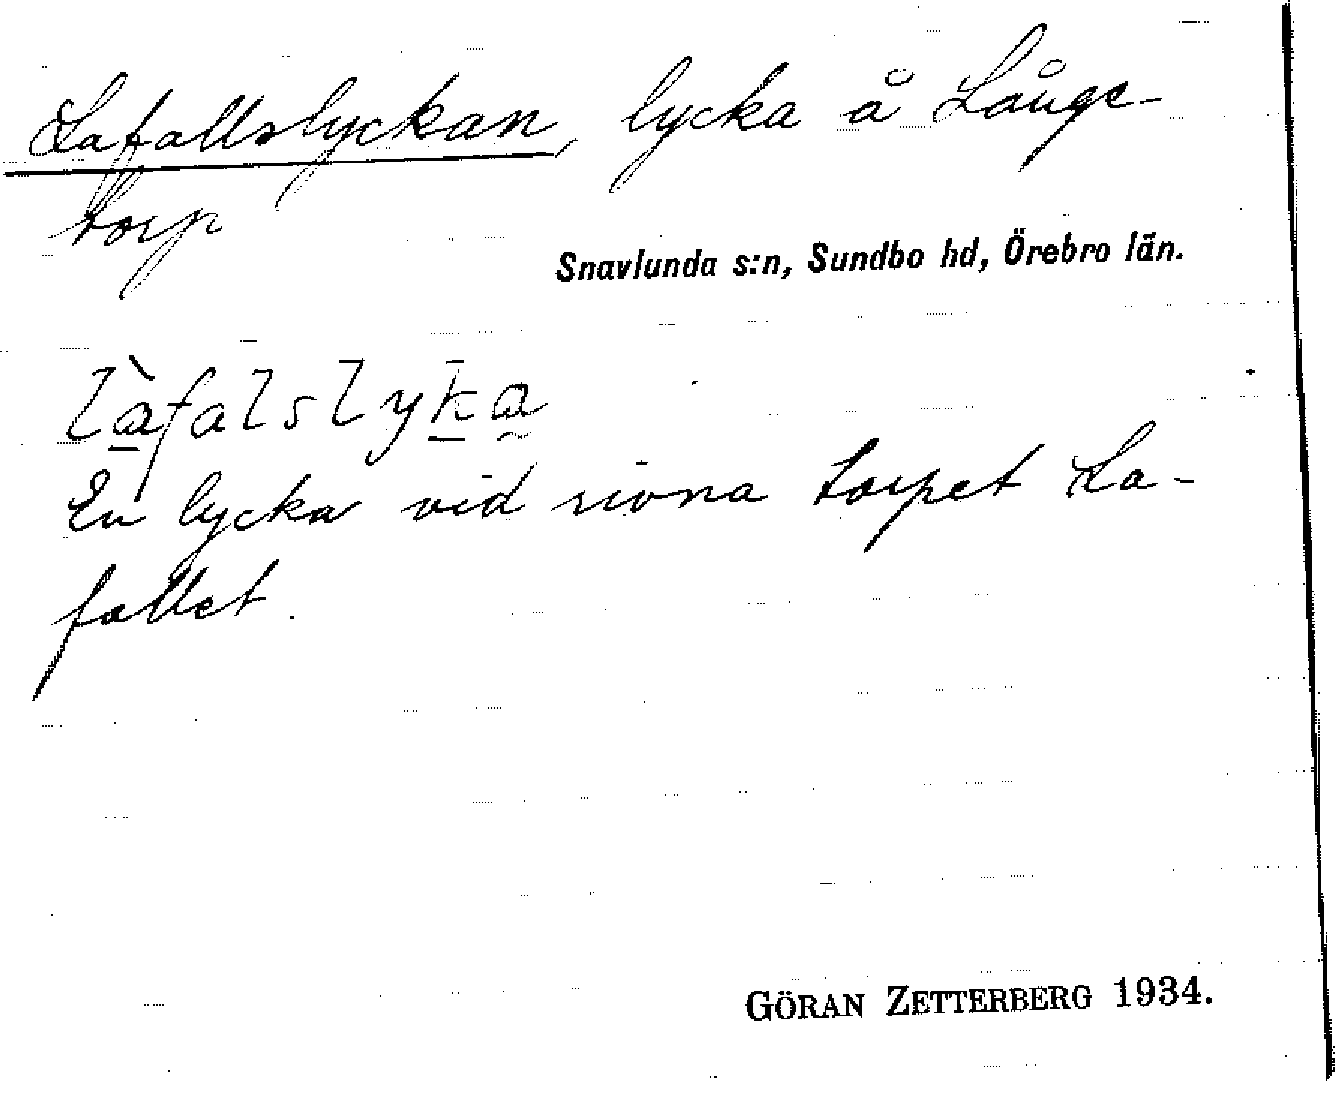 Lafallslyckan, lycka å Långe-
torp
Snavlunda s:n, Sundbo hd, Örebro län.
làfalslyka
En lycka vid rivna torpet La-
fallet.
GÖRAN ZETTERBERG 1934.